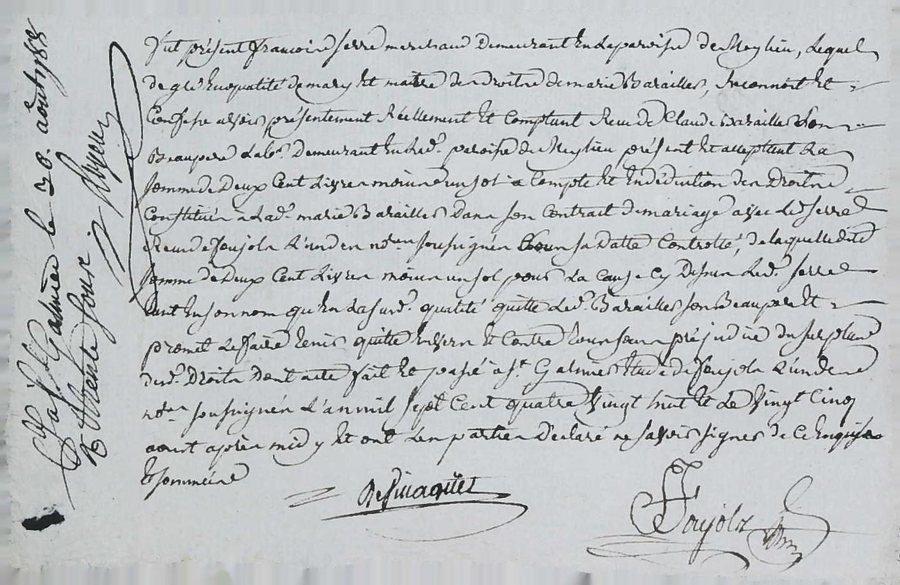 fut présent francois serre marchand demeurant en la paroisse de Meylieu, Lequel
de gré en qualité de mary et maitre des droits de marie Barailles, Reconnoit et
Confesse avoir présentement Réellement et Comptant Receu de Claude Barailles son
Beaupere Labr. demeurant en lad. paroisse de Meylieu présent et acceptant La
somme de Deux Cent Livres moins un sol a Compte et en déduction des Droits
Constitués a Lad. marie Barailles dans son Contrat de mariage avec Led. serre
Receu de foujols L'un des nores soussignés sous sa datte Controllé, de laquelle dite
somme de Deux Cent Livres moins un sol pour La Cause Cy Dessus Led. serre
tant en son nom qu'en la susd. qualité quitte Led. Barailles son Beaupere et
promet Le faire tenir quitte envers et Contre tous sans préjudice du surplus
desd. Droits dont acte fait et passé a St. Galmier Etude de foujols L'un des
nores soussignés L'an mil sept Cent quatre vingt huit et Le vingt Cinq
aoust après midy et ont Les parties déclaré ne savoir signer de Ce Enquises
et sommées
foujols
St. Galmier le 30. aout 1788